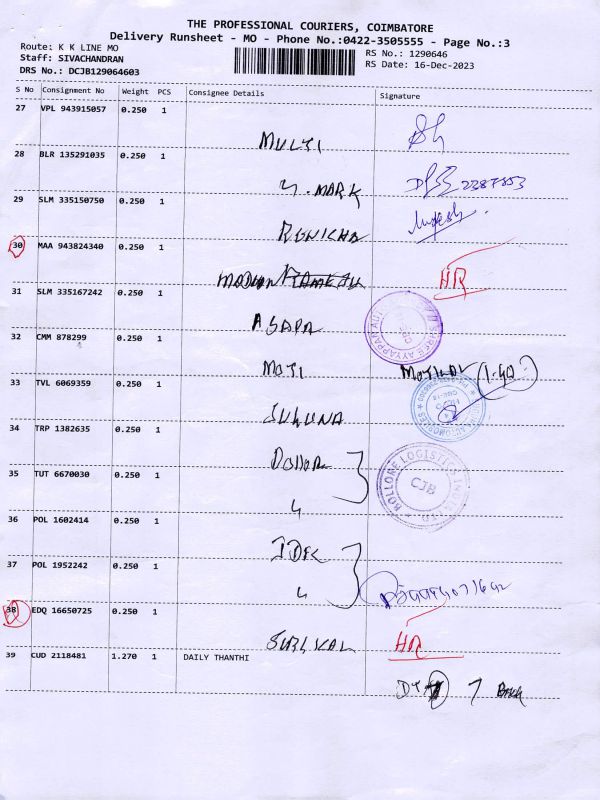 THE PROFESSIONAL COURIERS, COIMBATORE
Delivery Runsheet - MO - Phone No.:0422-3505555 - Page No.:3
Route: K K LINE MO
RS No.: 1290646
Staff: SIVACHANDRAN
RS Date: 16-Dec-2023
DRS No.: DCJB129064603
S No Consignment No Weight PCS Consignee Details Signature
27 VPL 943915057 0.250 1
MULTI
28 BLR 135291035 0.250 1
4. MARK
29 SLM 335150750 0.250 1
30 MAA 943824340 0.250 1
HR
31 SLM 335167242 0.250 1
32 CMM 878299 0.250 1
MOTI
33 TVL 6069359 0.250 1
SUGUNA
34 TRP 1382635 0.250 1
Dollar
35 TUT 6670030 0.250 1
BOLLORE LOGISTICS INDIA
CJB
36 POL 1602414 0.250 1
37 POL 1952242 0.250 1
38 EDQ 16650725 0.250 1
HR
39 CUD 2118481 1.270 1 DAILY THANTHI